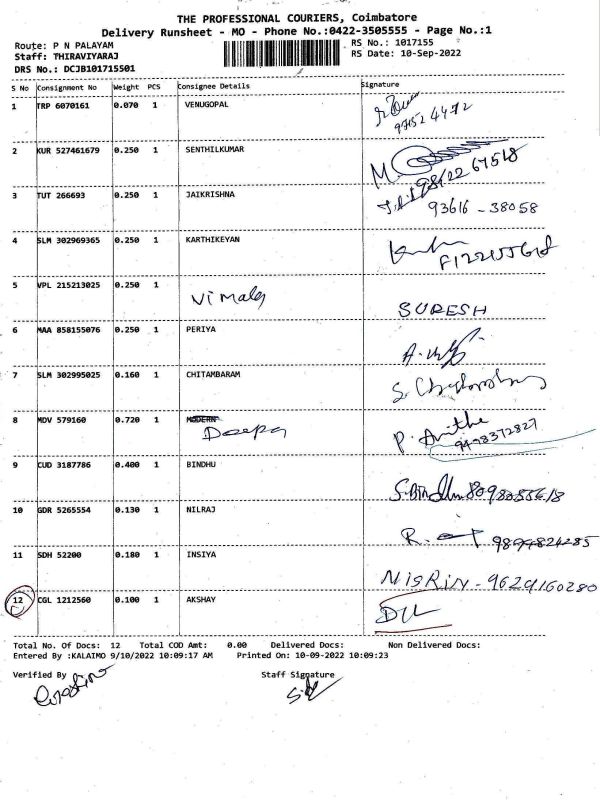 THE PROFESSIONAL COURIERS, Coimbatore
Delivery Runsheet - MO - Phone No.:0422-3505555 - Page No.:1
Route: P N PALAYAM RS No.: 1017155
Staff: THIRAVIYARAJ RS Date: 10-Sep-2022
DRS No.: DCJB101715501
S No Consignment No Weight PCS Consignee Details Signature
1 TRP 6070161 0.070 1 VENUGOPAL
2 KUR 527461679 0.250 1 SENTHILKUMAR
3 TUT 266693 0.250 1 JAIKRISHNA 93616 - 38058
4 SLM 302969365 0.250 1 KARTHIKEYAN
5 VPL 215213025 0.250 1 Vimala SURESH
6 MAA 858155076 0.250 1 PERIYA
7 SLM 302995025 0.160 1 CHITAMBARAM
8 MDV 579160 0.720 1 MODERN Deepa P. Anitha
9498372827
9 CUD 3187786 0.400 1 BINDHU S.Bindhu 8098055618
10 GDR 5265554 0.130 1 NILRAJ 9894824285
11 SDH 52200 0.180 1 INSIYA NISRIN - 9629160280
12 CGL 1212560 0.100 1 AKSHAY
Total No. Of Docs: 12 Total COD Amt: 0.00 Delivered Docs: Non Delivered Docs:
Entered By :KALAIMO 9/10/2022 10:09:17 AM Printed On: 10-09-2022 10:09:23
Verified By Staff Signature